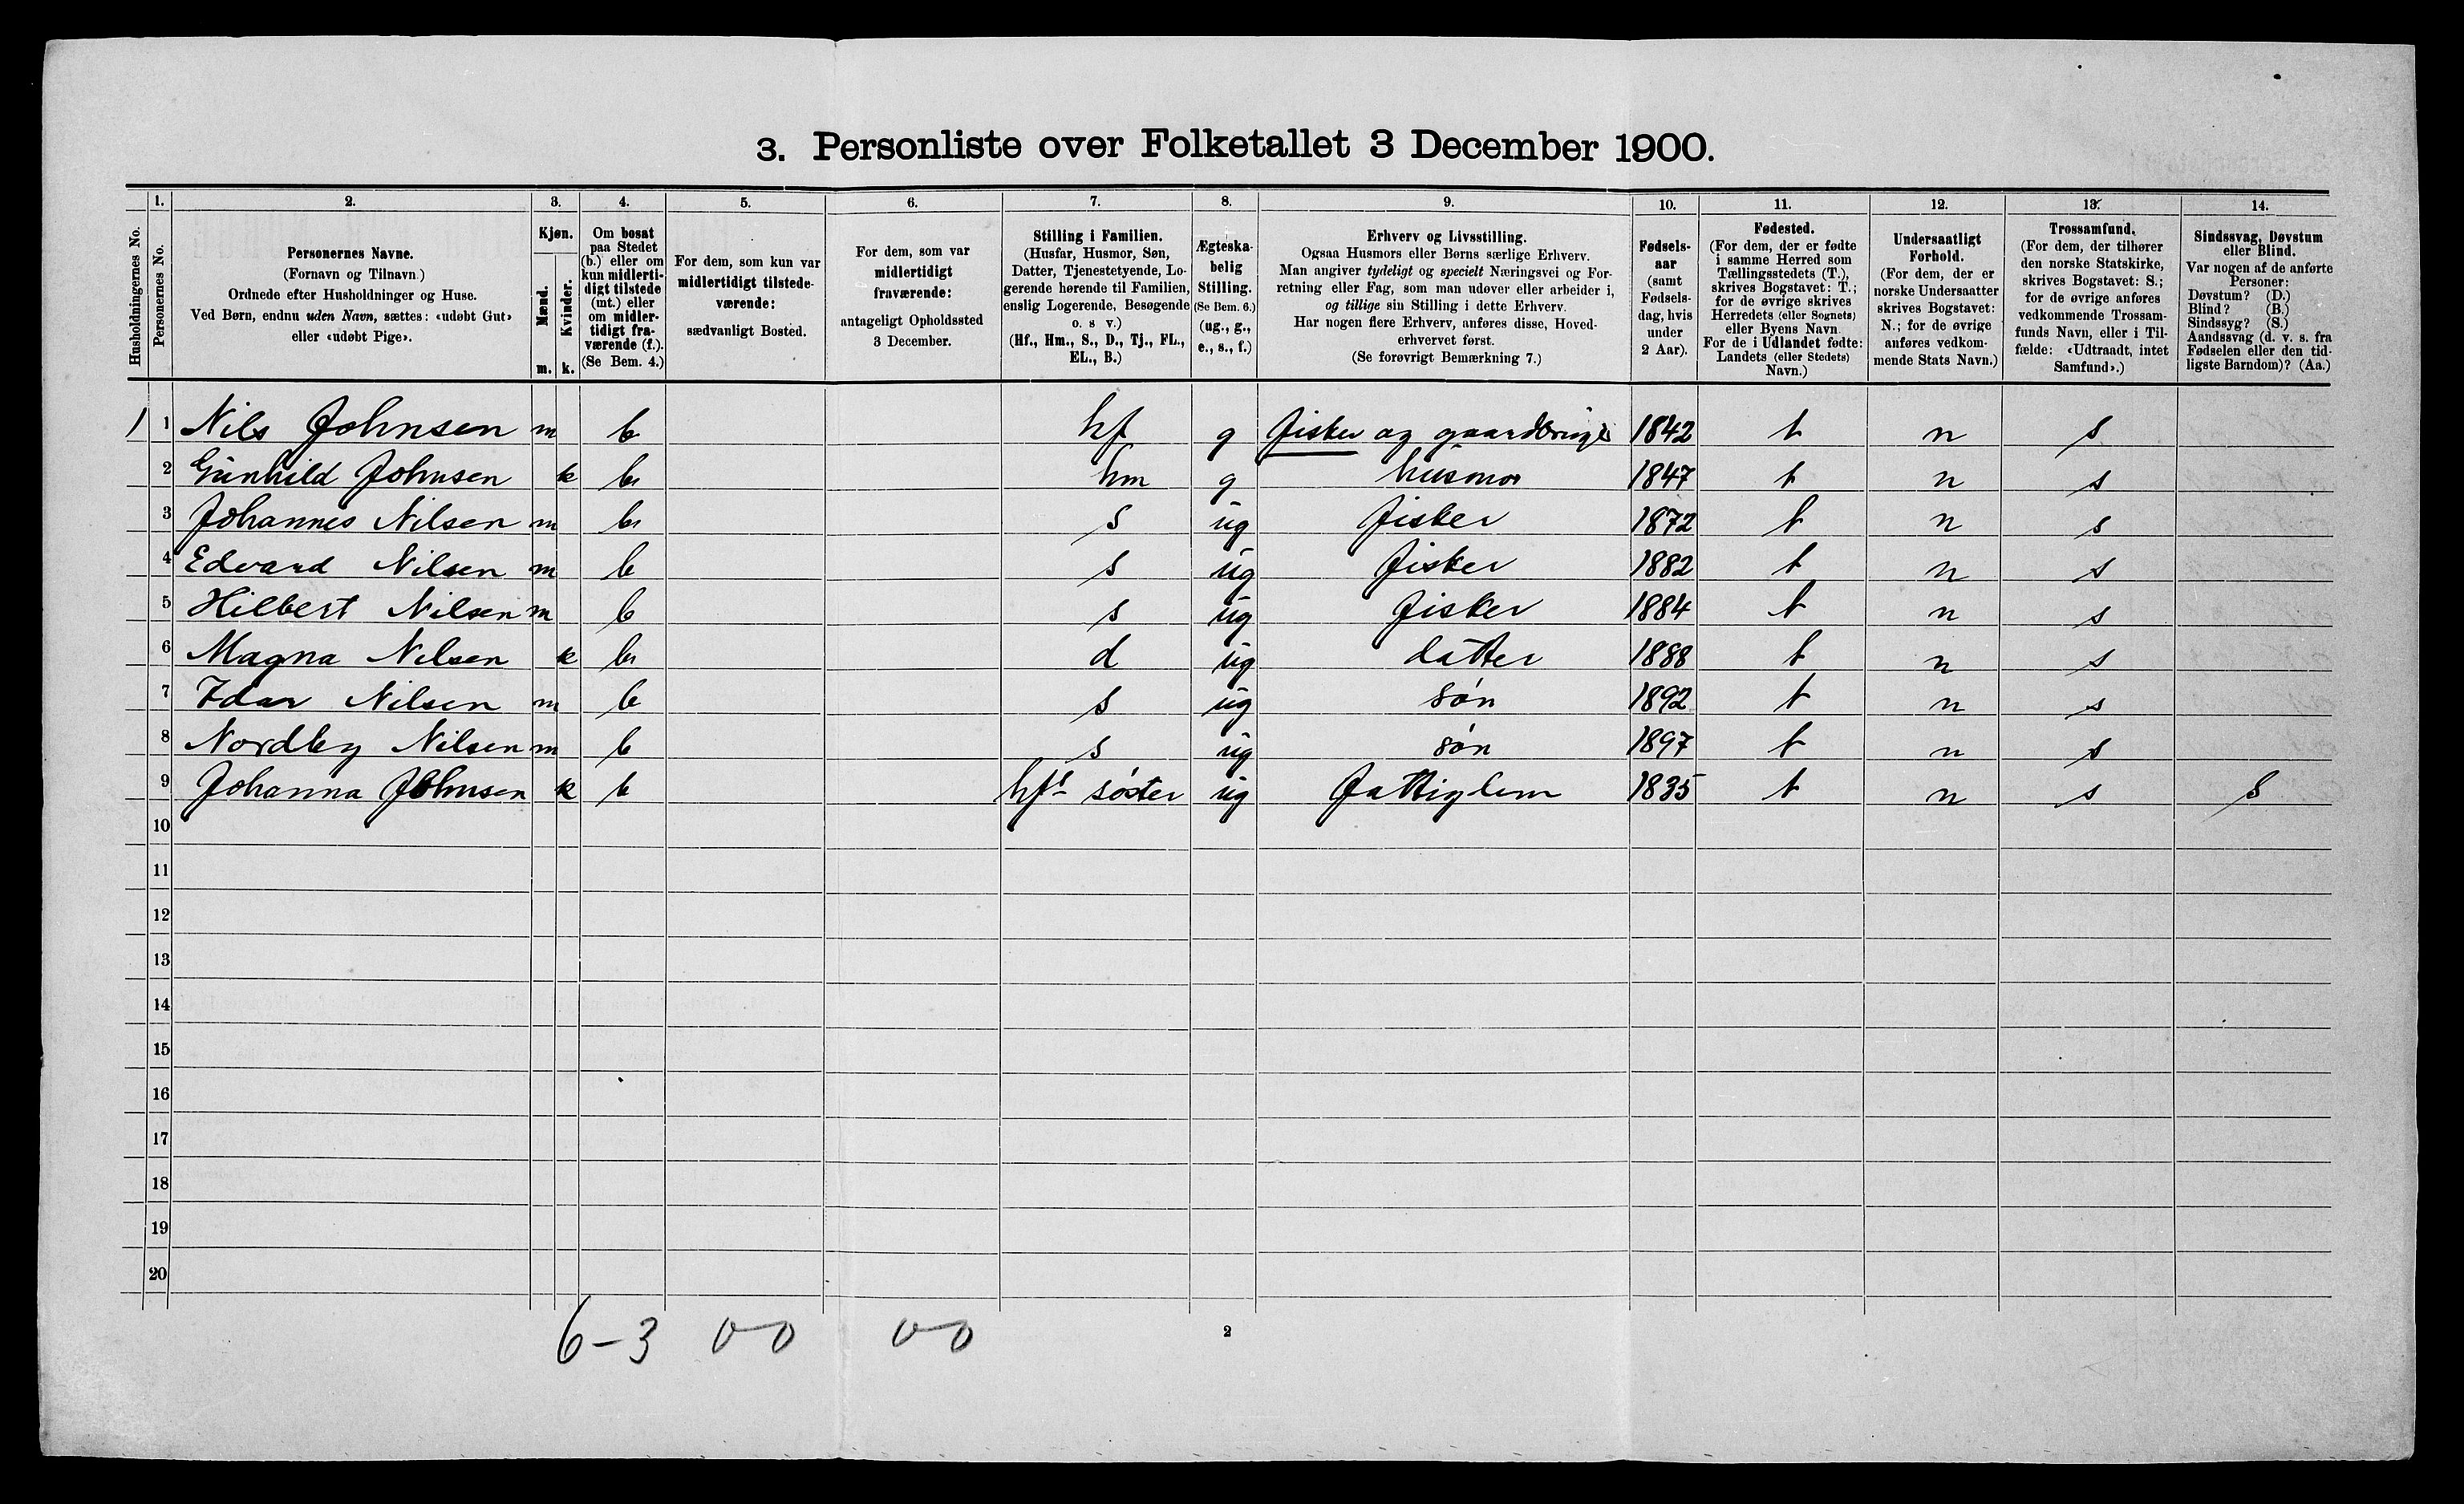 3. Personliste over Folketallet 3 December 1900.
Husholdningernes No.
1. Personernes No.
2. Personernes Navne.
(Fornavn og Tilnavn.)
Ordnede efter Husholdninger og Huse.
Ved Børn, endnu uden Navn, sættes: «udøbt Gut»
eller «udøbt Pige».
3. Kjøn.
Mænd. m.
Kvinder. k.
4. Om bosat
paa Stedet
(b.) eller om
kun midlerti-
digt tilstede
(mt.) eller
om midler-
tidigt fra-
værende (f.).
(Se Bem. 4.)
5. For dem, som kun var
midlertidigt tilstede-
værende:
sædvanligt Bosted.
6. For dem, som var
midlertidigt
fraværende:
antageligt Opholdssted
3 December.
7. Stilling i Familien.
(Husfar, Husmor, Søn,
Datter, Tjenestetyende, Lo-
gerende hørende til Familien,
enslig Logerende, Besøgende
o. s v.)
(Hf., Hm., S., D., Tj., FL.,
EL., B.)
8. Ægteska-
belig
Stilling.
(Se Bem. 6.)
(ug., g.,
e., s., f.)
9. Erhverv og Livsstilling.
Ogsaa Husmors eller Børns særlige Erhverv.
Man angiver tydeligt og specielt Næringsvei og For-
retning eller Fag, som man udøver eller arbeider i,
og tillige sin Stilling i dette Erhverv.
Har nogen flere Erhverv, anføres disse, Hoved-
erhvervet først.
(Se forøvrigt Bemærkning 7.)
10. Fødsels-
aar
(samt
Fødsels-
dag, hvis
under
2 Aar).
11. Fødested.
(For dem, der er fødte
i samme Herred som
Tællingsstedets (T.),
skrives Bogstavet: T.;
for de øvrige skrives
Herredets (eller Sognets)
eller Byens Navn.
For de i Udlandet fødte:
Landets (eller Stedets)
Navn.)
12. Undersaatligt
Forhold.
(For dem, der er
norske Undersaatter
skrives Bogstavet:
N.; for de øvrige
anføres vedkom-
mende Stats Navn.)
13. Trossamfund.
(For dem, der tilhører
den norske Statskirke,
skrives Bogstavet: S.;
for de øvrige anføres
vedkommende Trossam-
funds Navn, eller i Til-
fælde: «Udtraadt, intet
Samfund».)
14. Sindssvag, Døvstum
eller Blind.
Var nogen af de anførte
Personer:
Døvstum? (D.)
Blind? (B.)
Sindssyg? (S.)
Aandssvag (d. v. s. fra
Fødselen eller den tid-
ligste Barndom)? (Aa.)
1 1 Nils Johnsen m b hf g fisker og gaardbruger 1842 t n s
2 Gunhild Johnsen k b hm g husmor 1847 t n s
3 Johannes Nilsen m b s ug fisker 1872 t n s
4 Edvard Nilsen m b s ug fisker 1882 t n s
5 Hilbert Nilsen m b s ug fisker 1884 t n s
6 Magna Nilsen k b d ug datter 1888 t n s
7 Idar Nilsen m b s ug søn 1892 t n s
8 Nordby Nilsen m b s ug søn 1897 t n s
9 Johanna Johnsen k b hfs søster ug fattiglem 1835 t n s S
10
11
12
13
14
15
16
17
18
19
20
6-3 0-0 0-0
2